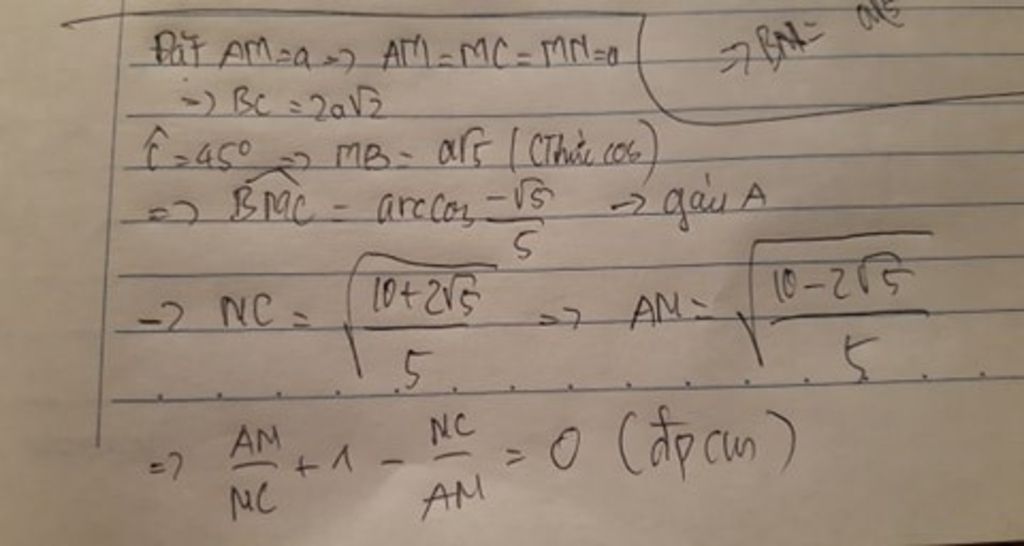 Đặt AM=a => AM=MC=MN=a
=> BN=
=> BC = 2a√2
Ĉ=45° => MB= a√5 (CThức cos)
=> BMC = arccos -√5/5 -> gán A
-> NC = √((10+2√5)/5) => AN = √((10-2√5)/5)
=> AM/NC + 1 - NC/AM = 0 (đpcm)